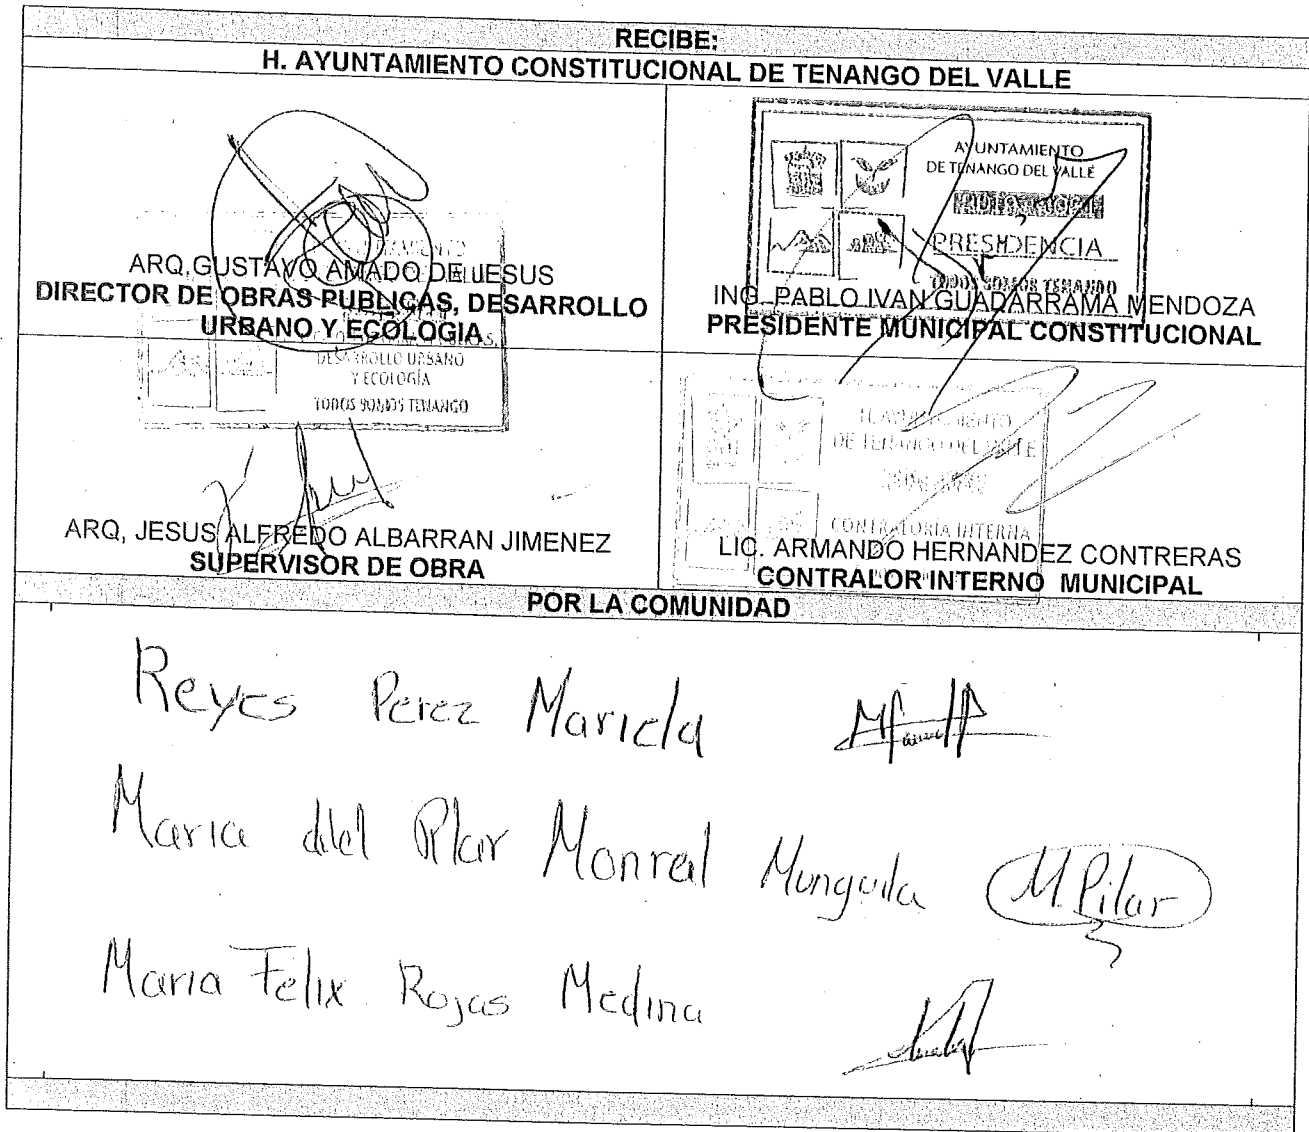 RECIBE:
H. AYUNTAMIENTO CONSTITUCIONAL DE TENANGO DEL VALLE
ARQ. GUSTAVO AMADO DE JESUS
DIRECTOR DE OBRAS PUBLICAS, DESARROLLO
URBANO Y ECOLOGIA
DESARROLLO URBANO
Y ECOLOGÍA
TODOS SOMOS TENANGO
AYUNTAMIENTO
DE TENANGO DEL VALLE
PRESIDENCIA
TODOS SOMOS TENANGO
ING. PABLO IVAN GUADARRAMA MENDOZA
PRESIDENTE MUNICIPAL CONSTITUCIONAL
ARQ, JESUS ALFREDO ALBARRAN JIMENEZ
SUPERVISOR DE OBRA
H. AYUNTAMIENTO
DE TENANGO DEL VALLE
CONTRALORIA INTERNA
LIC. ARMANDO HERNANDEZ CONTRERAS
CONTRALOR INTERNO MUNICIPAL
POR LA COMUNIDAD
Reyes Perez Mariela
Maria del Pilar Monreal Munguia M. Pilar
Maria Felix Rojas Medina